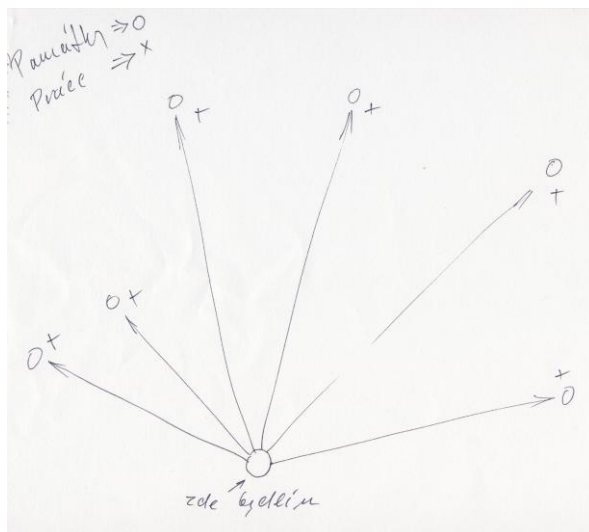 Památky ⇒ O
Práce ⇒ x
O +
O +
O
+
O +
O +
+
O
zde bydlím